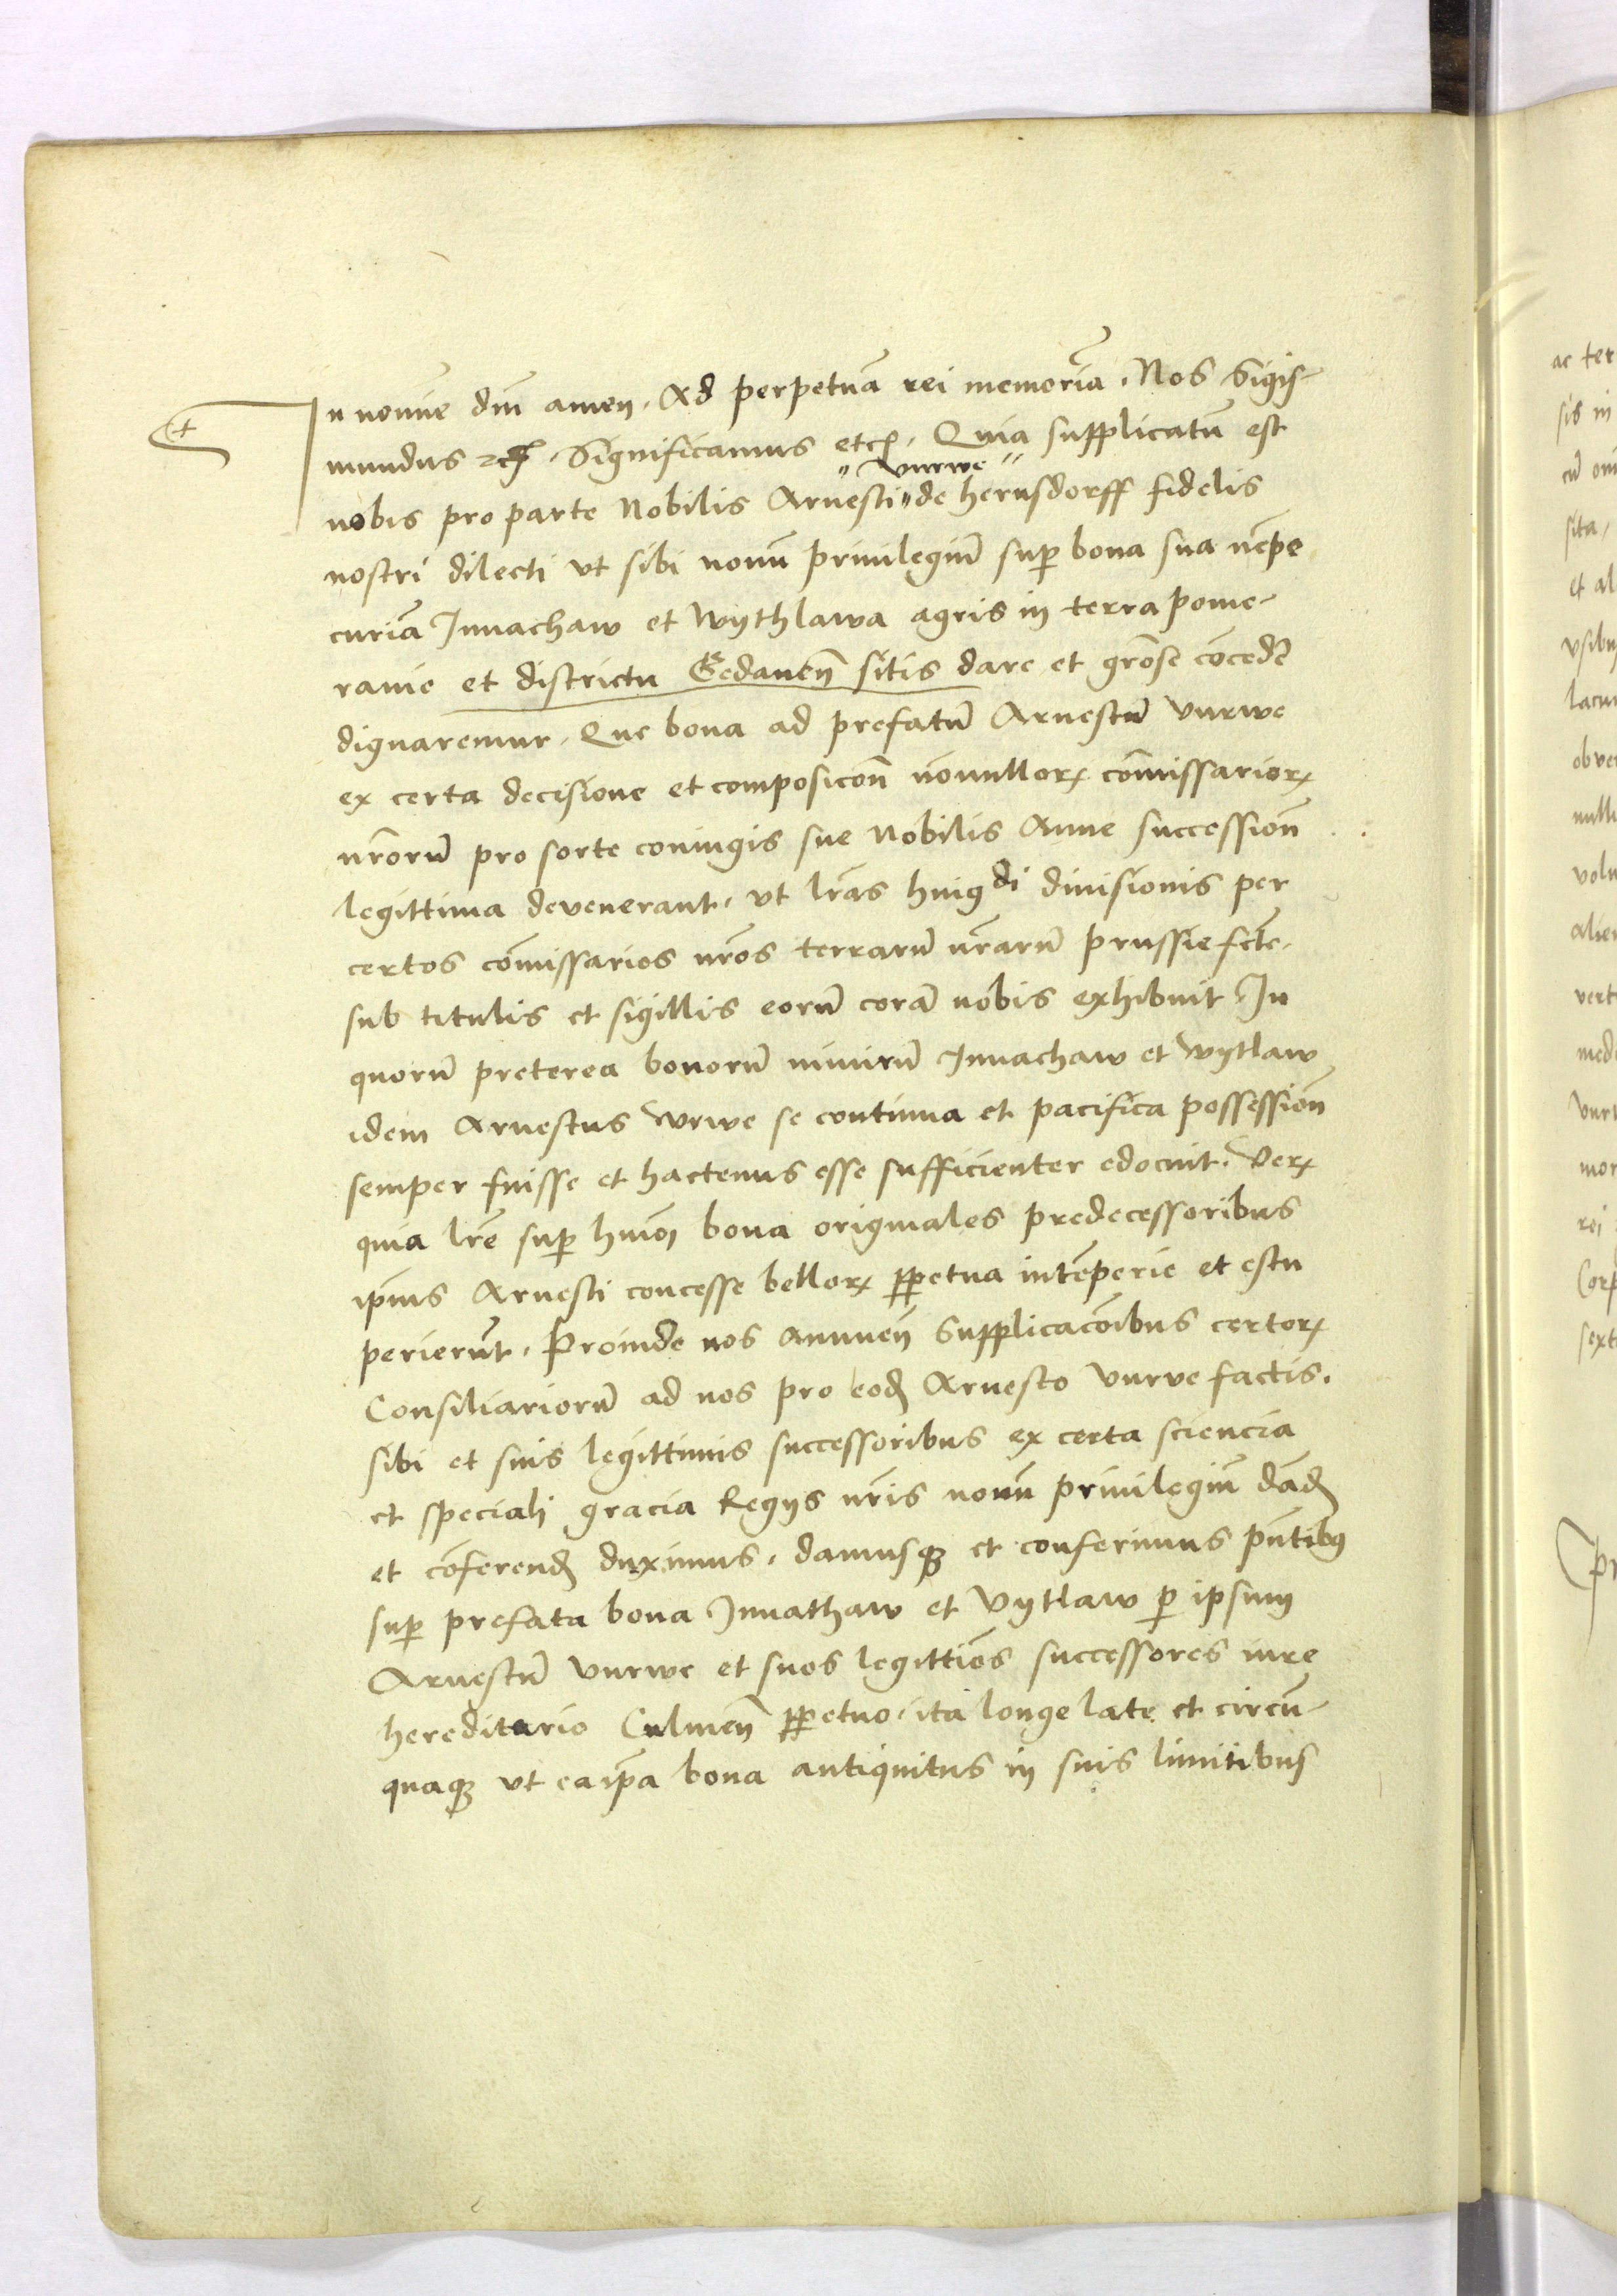 In nomine dni amen. Ad perpetuā rei memoriā. Nos Sigis-
mundus etc. Significamus etc. Quia supplicatū est
vnrwe
nobis pro parte Nobilis Arnesti de hernsdorff fidelis
nostri dilecti vt sibi nouū priuilegiū sup bona sua nēpe
curiā Jnnachaw et Wythlawa agris in terra pome-
ranie et districtu Gedaneñ sitis dare et grōse cōcedē
dignaremur. Que bona ad prefatū Arnestū vnrwe
ex certa decisione et composicōn nōnullorꝝ cōmissariorꝝ
nrōrū pro sorte coniugis sue Nobilis Anne successioñ
legittima devenerant. vt lrās huigdi diuisionis per
certos cōmissarios nrōs terrarū nrārū prussie fctē.
sub titulis et sigillis eorū corā nobis exhibuit. In
quorū preterea bonorū nimirū Jnnachaw et Wytlaw
idem Arnestus vrwe se continua et pacifica possessioñ
semper fuisse et hactenus esse sufficienter edocuit. Verꝝ
quia lrē sup huiōi bona originales predecessoribus
ipius Arnesti concesse bellorꝝ ꝑpetua intēperie et estu
perierūt. Proinde nos annueñ supplicacōibus certorꝝ
Consiliariorū ad nos pro eod Arnesto vnrve factis.
sibi et suis legittimis successoribus ex certa sciencia
et speciali gracia Regijs nrīs nouū priuilegiū dād
et cōferend duximus. damusqꝫ et conferimus pñtibꝫ
sup prefata bona Jnnathaw et Vytlaw ꝑ ipsum
Arnestū vnrwe et suos legittiōs successores iure
hereditario Culmeñ ꝑpetuo. ita longe late et circū-
quaqꝫ vt ea ipa bona antiquitus in suis limitibus
ac ter
sis in
cū om
sita,
et al
vsibu
lacu
obve
nullu
volu
alie
vert
med
vnr
mor
rei
Corp
sext
pr